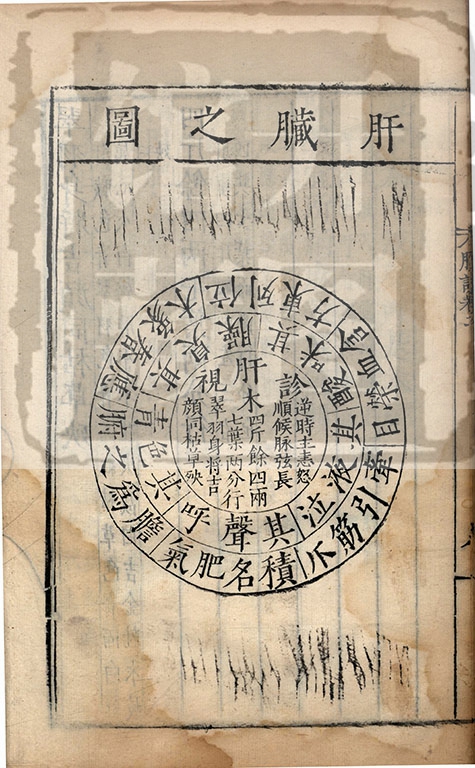 肝臟之圖
位列東方
含血榮目
牽引筋爪
積名肥氣
膽為之腑
應春象木
其臭臊
其味酸
其液泣
其聲呼
其色青
診
逆時主恚怒
順候脉弦長
肝木
四斤餘四兩
七葉兩分行
視
翠羽身將吉
顏同枯草殃